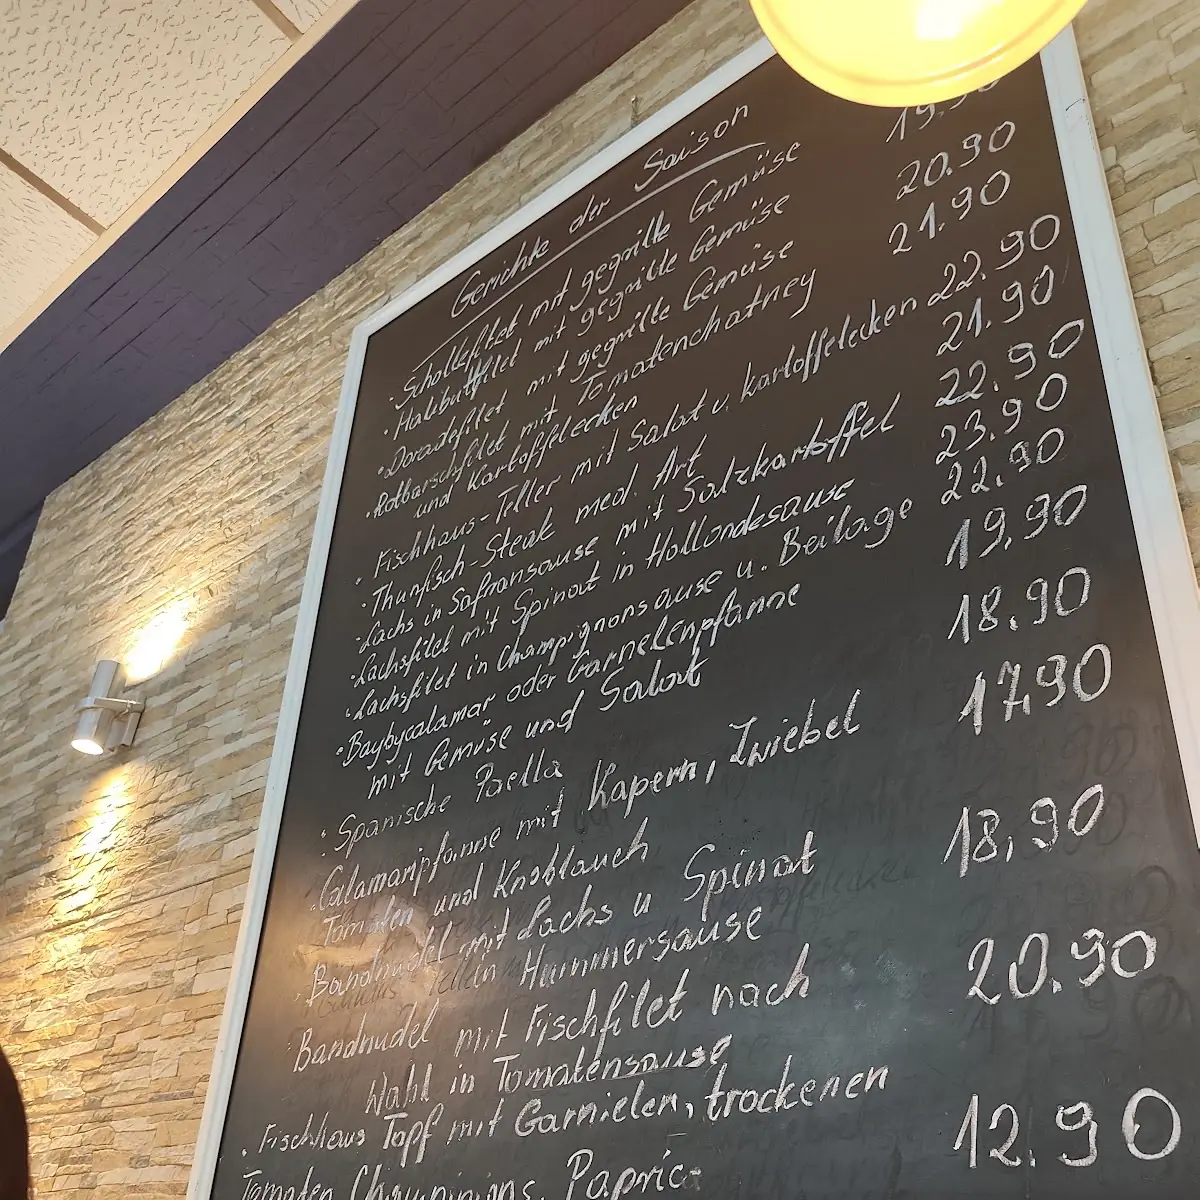 Gerichte der Saison
· Schollefilet mit gegrille Gemüse 19.90
· Halibuttfilet mit gegrille Gemüse 20.90
· Doradefilet mit gegrille Gemüse 21.90
· Rotbarschfilet mit Tomatenchatney
und Kartoffelecken 22.90
· Fischhaus-Teller mit Salat u. Kartoffelecken 21.90
· Thunfisch-Steak med. Art 22.90
· Lachs in Safransause mit Salzkartoffel 23.90
· Lachsfilet mit Spinat in Hollondesause 22.90
· Lachsfilet in Champignonsause u. Beilage 19,90
· Baybycalamar oder Garnelenpfanne
mit Gemüse und Salat 18.90
· Spanische Paella 17.90
· Calamaripfanne mit Kapern, Zwiebel
Tomaten und Knoblauch 18,90
· Bandnudel mit Lachs u Spinat
in Hummersause
Bandnudel mit Fischfilet nach 20.90
Wahl in Tomatensause
· Fischhaus Topf mit Garnielen, trockenen
Tomaten 12.90